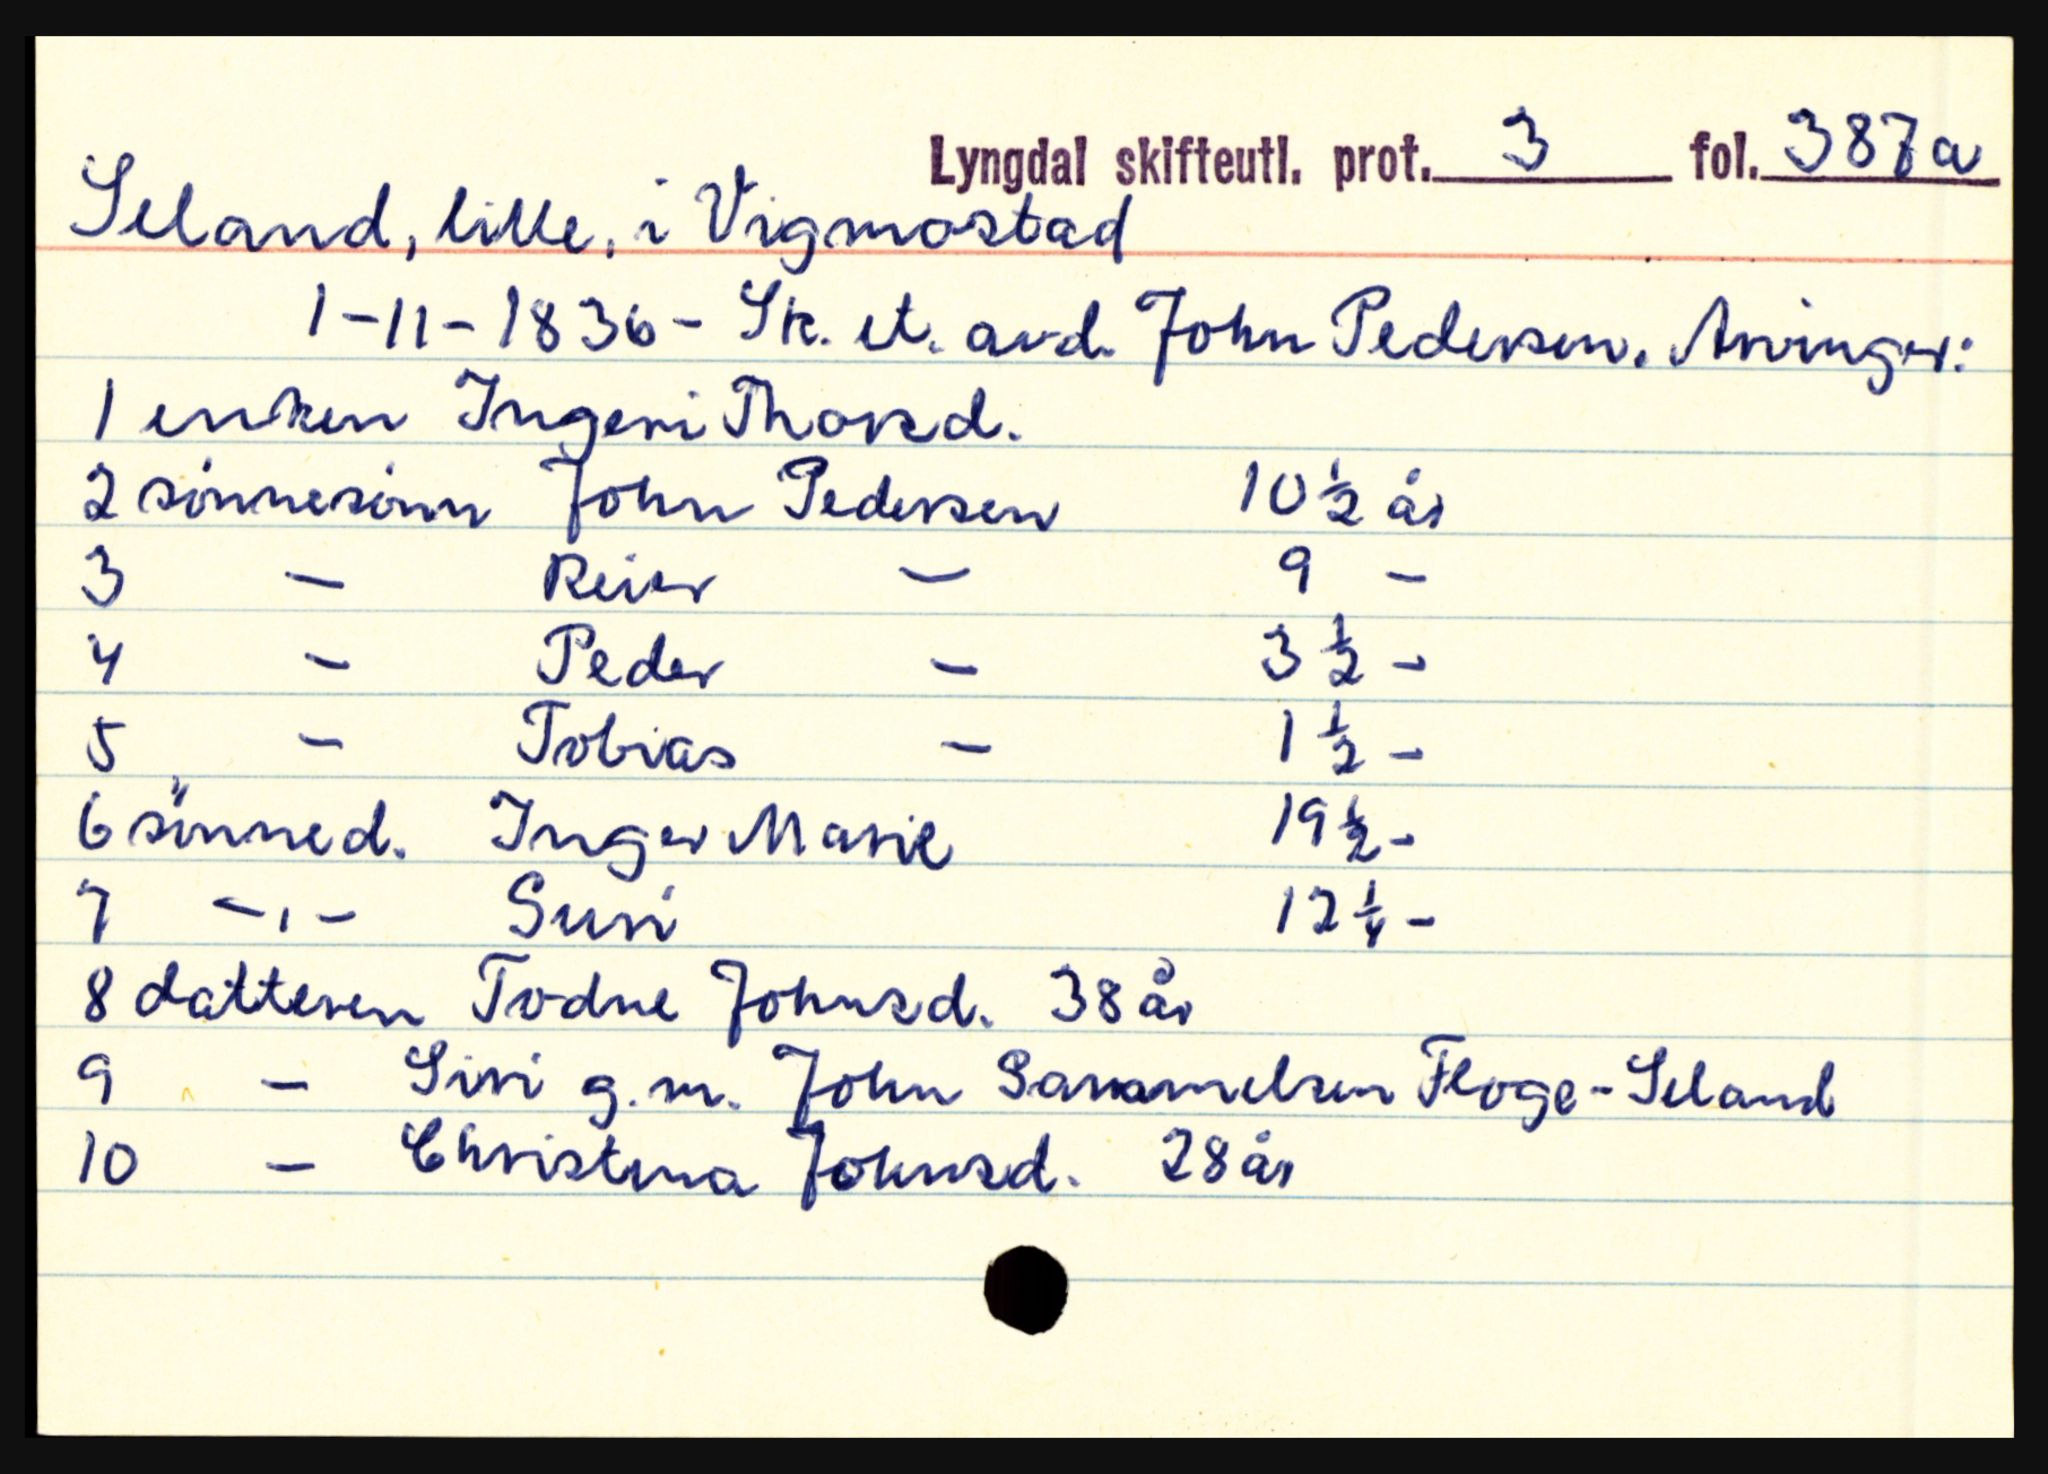 Lyngdal skifteutl. prot. 3 fol. 387a
Seland, lille, i Vigmostad
1-11-1836- Sk. et. avd. John Pedersen. Arvinger:
1 enken Ingeri Thorsd.
2 sönnesönn John Pedersen 10 1/2 år
3 - Reier - 9 -
4 - Peder - 3 1/2 -
5 - Tobias - 1 1/2 -
6 sönned. Inger Marie 19 1/2 -
7 -"- Siri 12 1/4 -
8 datteren Todne Johnsd. 38 år
9 - Siri g.m. John Samuelsen Floge-Seland
10 - Christina Johnsd. 28 år